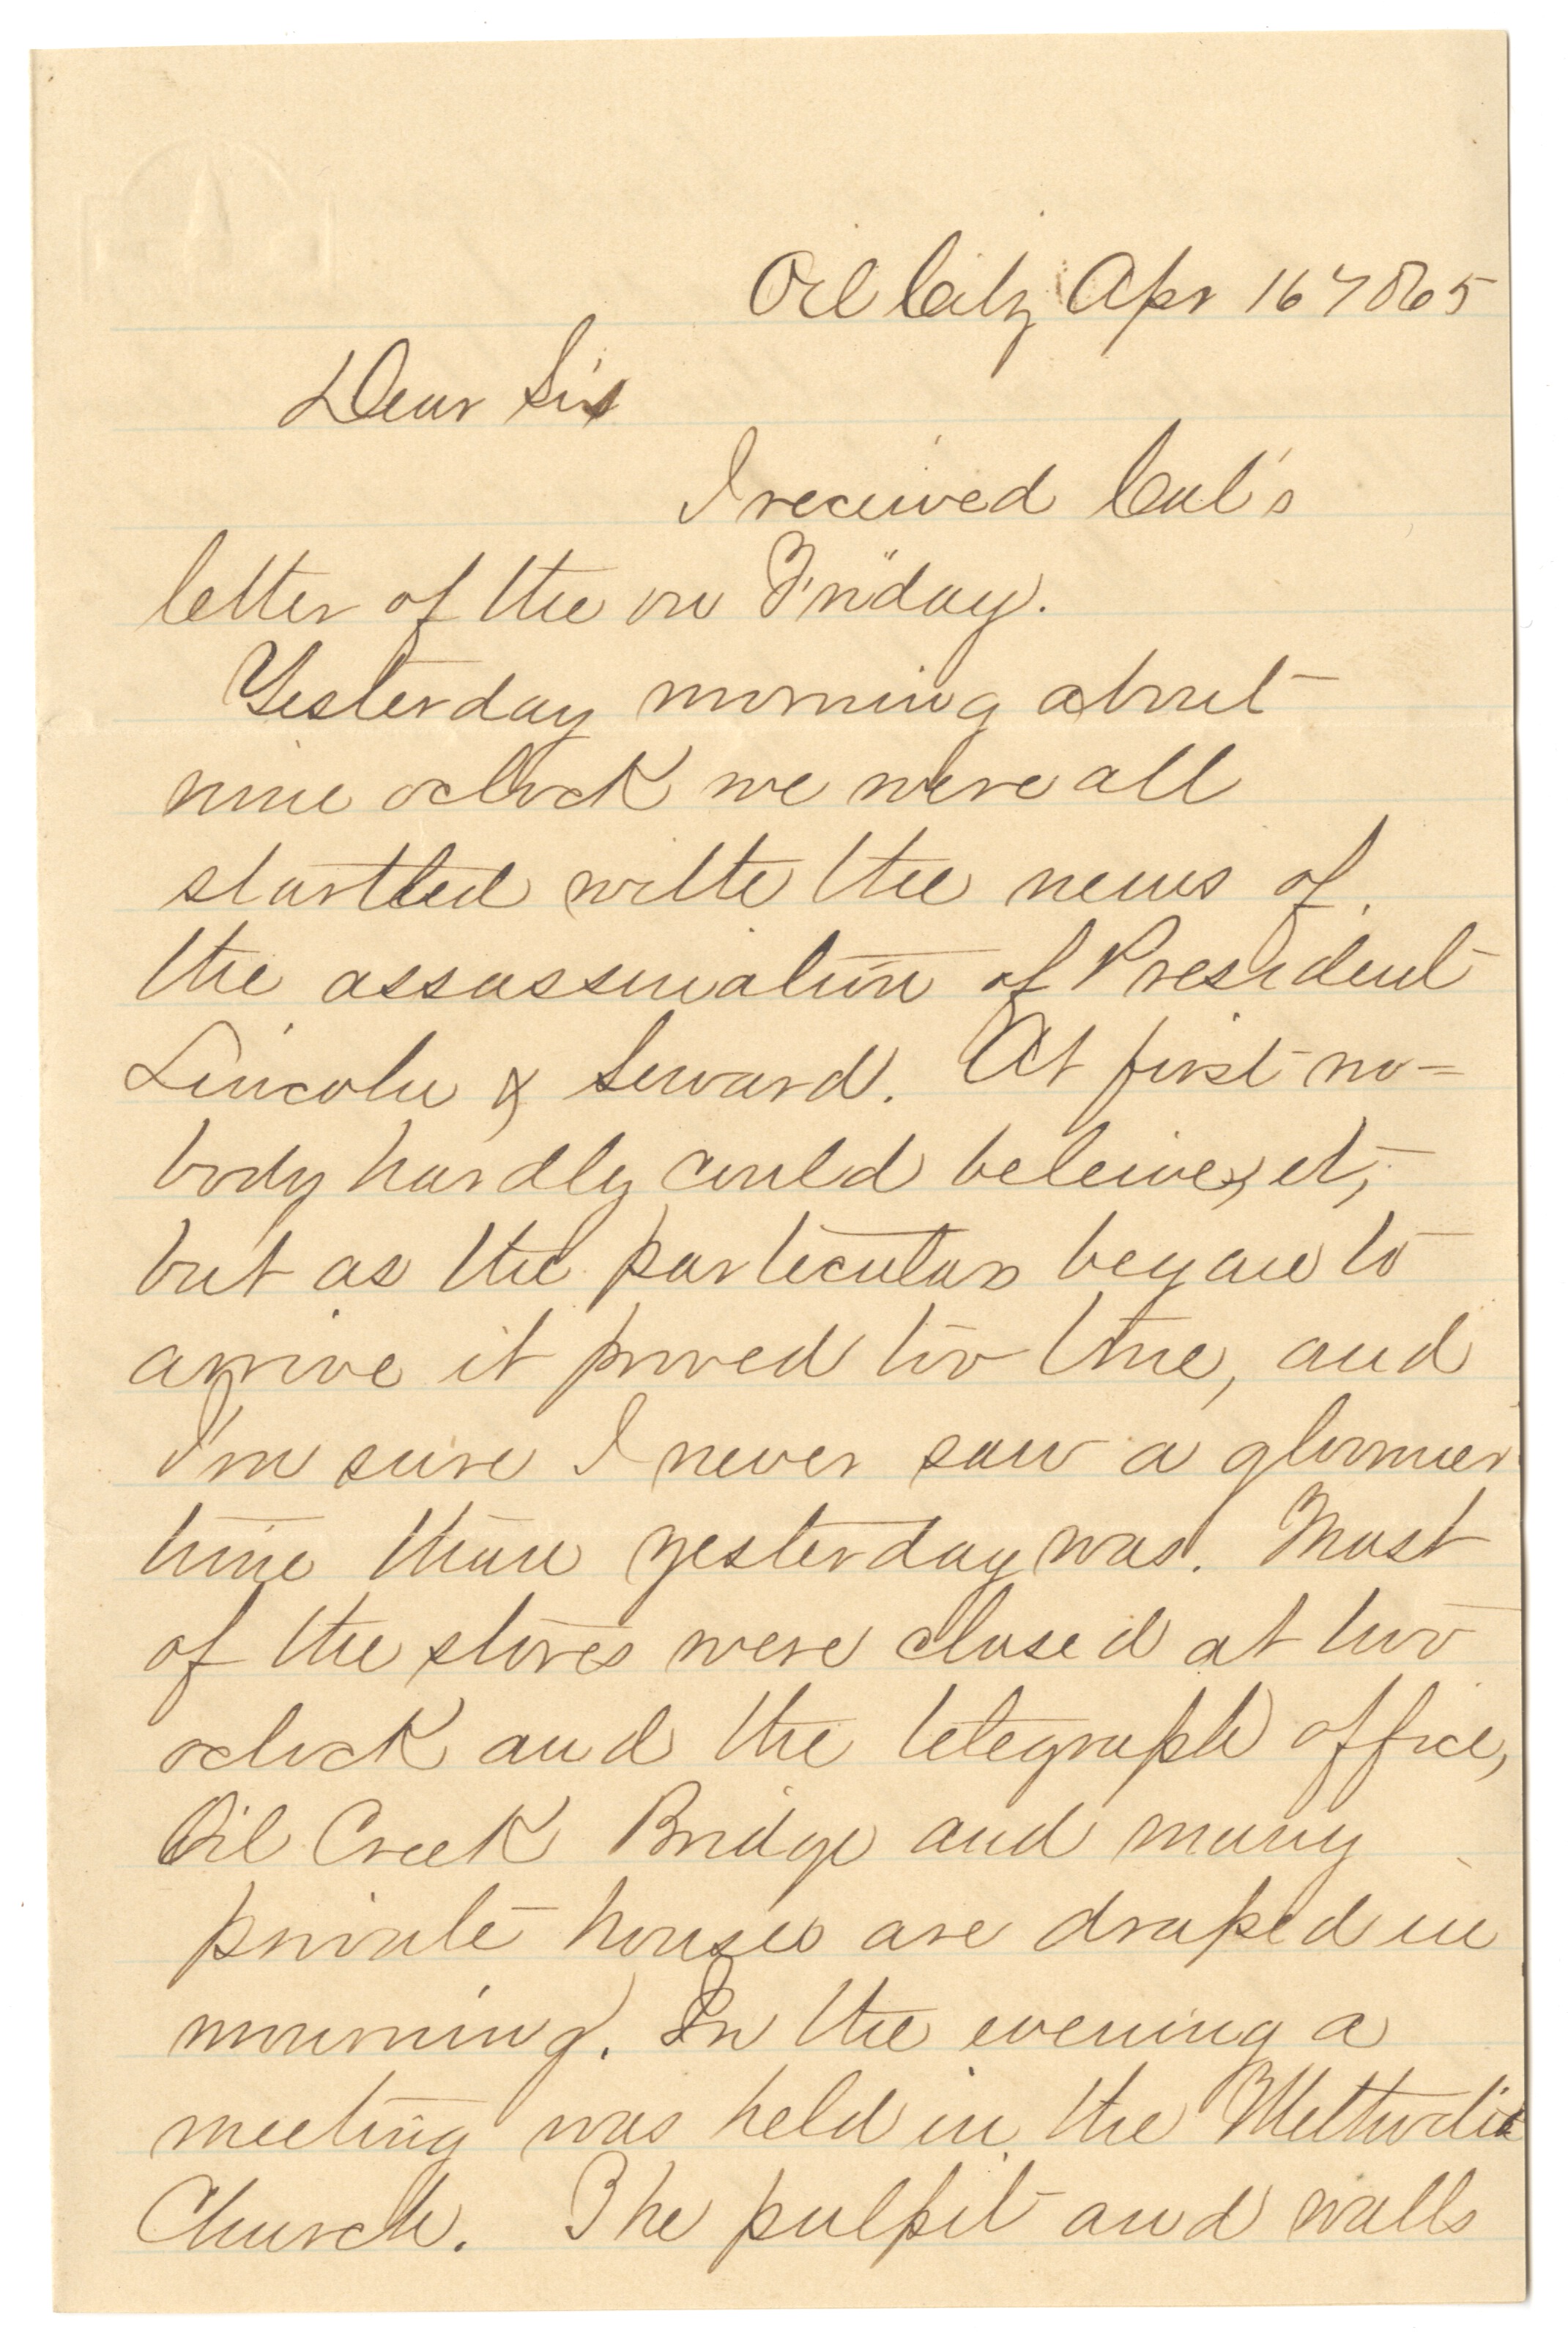 Oil City Apr 16 1865
Dear Sis
I received Cal's
letter of the on Friday.
Yesterday morning about
nine oclock we were all
startled with the news of
the assassination of President
Lincoln & Seward. At first no=
body hardly could beleive, it,
but as the particulars began to
arrive it proved too true, and
I'm sure I never saw a gloomier
time than yesterday was. Most
of the stores were closed at two
oclock and the telegraph office,
Oil Creek Bridge and many
private houses are draped in
mourning. In the evening a
meeting was held in the Methodist
Church. The pulpit and walls